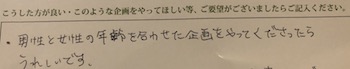 こうした方が良い・このような企画をやってほしい等、ご要望がございましたらご記入ください。
・男性と女性の年齢を合わせた企画をやってくださったら
うれしいです。